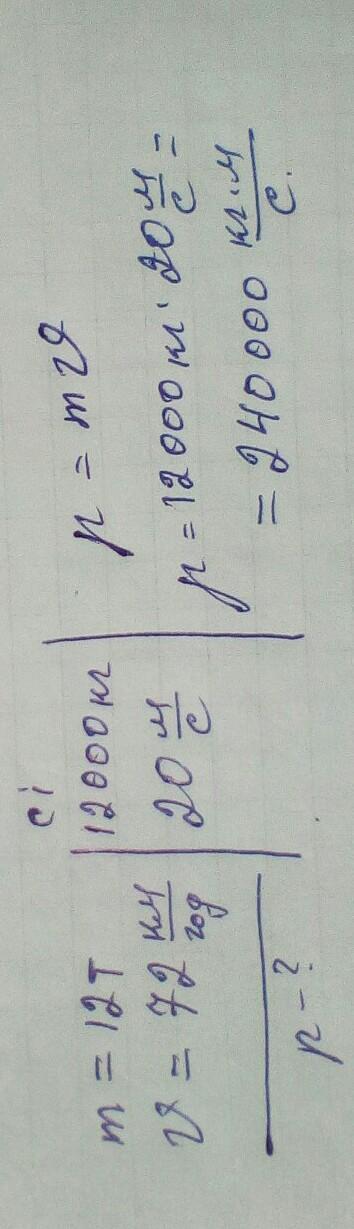 m = 12т
υ = 72 км/год
p – ?
сі
12000 кг
20 м/с
p = mυ
p = 12000 кг · 20 м/с =
= 240000 кг·м/с.